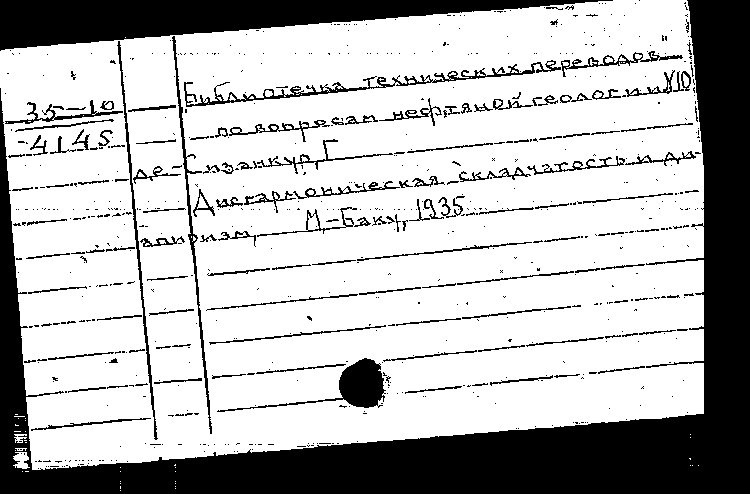 35-10
4145
Библиотечка технических переводов
по вопросам нефтяной геологии
де-Сизанкур, Г
Дисгармоническая складчатость и ди-
апиризм, М,-Баку, 1935